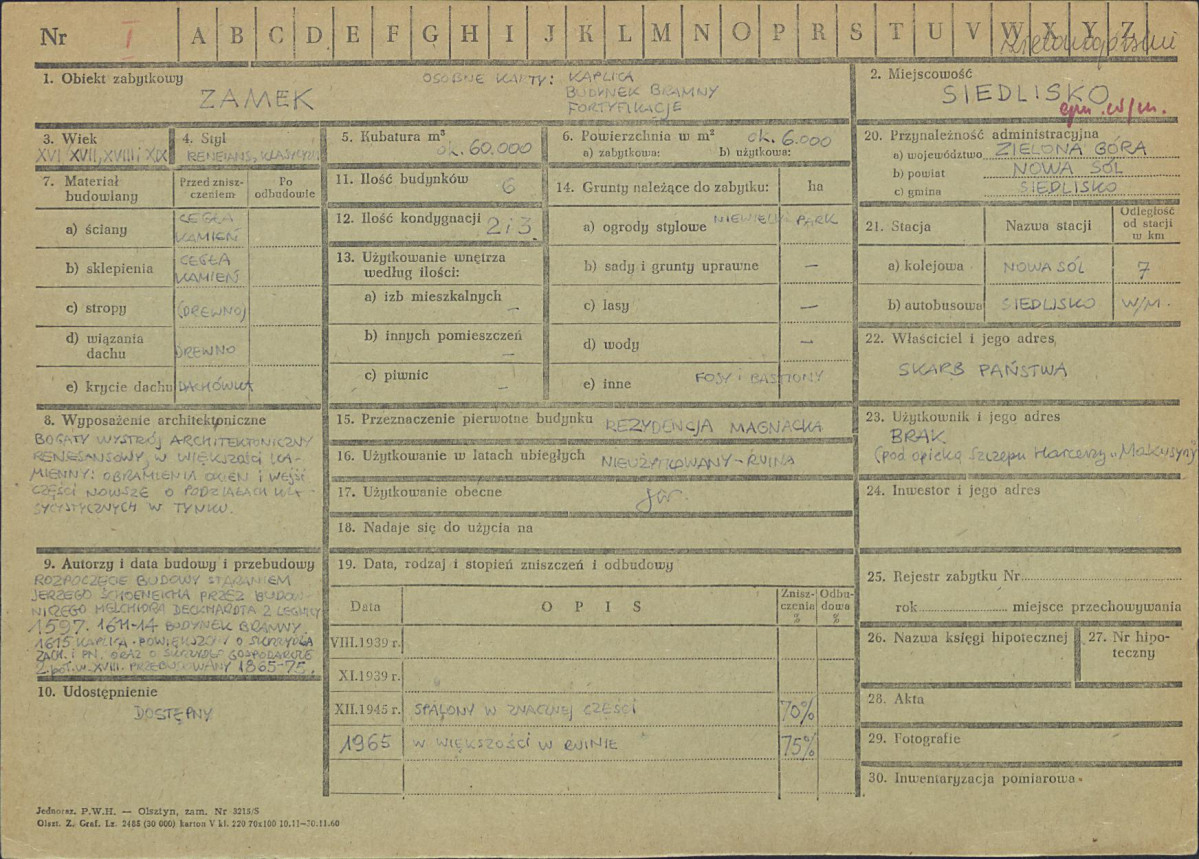 Nr I A B C D E F G H I J K L M N O P R S T U V W X Y Z
1. Obiekt zabytkowy
ZAMEK
OSOBNE KARTY: KAPLICA
BUDYNEK BRAMNY
FORTYFIKACJE
2. Miejscowość
SIEDLISKO
gm. w/m.
3. Wiek
XVI XVII, XVIII i XIX
4. Styl
RENESANS, KLASYCYZM
5. Kubatura m³
ok. 60.000
6. Powierzchnia w m² ok. 6.000
a) zabytkowa: b) użytkowa:
20. Przynależność administracyjna
a) województwo ZIELONA GÓRA
b) powiat NOWA SÓL
c) gmina SIEDLISKO
7. Materiał budowlany
Przed zniszczeniem
Po odbudowie
a) ściany CEGŁA KAMIEŃ
b) sklepienia CEGŁA KAMIEŃ
c) stropy (DREWNO)
d) wiązania dachu DREWNO
e) krycie dachu DACHÓWKA
11. Ilość budynków 6
12. Ilość kondygnacji 2 i 3
13. Użytkowanie wnętrza
według ilości:
a) izb mieszkalnych –
b) innych pomieszczeń –
c) piwnic –
14. Grunty należące do zabytku: ha
a) ogrody stylowe NIEWIELKI PARK
b) sady i grunty uprawne –
c) lasy –
d) wody –
e) inne FOSY i BASTIONY
21. Stacja Nazwa stacji Odległość od stacji w km
a) kolejowa NOWA SÓL 7
b) autobusowa SIEDLISKO W/M.
22. Właściciel i jego adres
SKARB PAŃSTWA
8. Wyposażenie architektoniczne
BOGATY WYSTRÓJ ARCHITEKTONICZNY
RENESANSOWY, W WIĘKSZOŚCI KA-
MIENNY: OBRAMIENIA OKIEN I WEJŚĆ
CZĘŚCI NOWSZE O PODZIAŁACH KLA-
SYCYSTYCZNYCH W TYNKU.
15. Przeznaczenie pierwotne budynku REZYDENCJA MAGNACKA
16. Użytkowanie w latach ubiegłych NIEUŻYTKOWANY – RUINA
17. Użytkowanie obecne jw.
18. Nadaje się do użycia na
23. Użytkownik i jego adres
BRAK
(pod opieką Szczepu Harcerzy „Makusyny
24. Inwestor i jego adres
9. Autorzy i data budowy i przebudowy
ROZPOCZĘCIE BUDOWY STARANIEM
JERZEGO SCHOENEICHA PRZEZ BUDOW-
NICZEGO MELCHIORA DECKHARDTA Z LEGNICY
1597. 1611-14 BUDYNEK BRAMNY.
1615 KAPLICA. POWIĘKSZONY O SKRZYDŁA
ZACH. I PN. ORAZ O SKRZYDŁO GOSPODARCZE
2 poł. w. XVIII. PRZEBUDOWANY 1865-75.
10. Udostępnienie
DOSTĘPNY
19. Data, rodzaj i stopień zniszczeń i odbudowy
Data OPIS Zniszczenia % Odbudowa %
VIII.1939 r.
XI.1939 r.
XII.1945 r. SPALONY W ZNACZNEJ CZĘŚCI 70%
1965 W WIĘKSZOŚCI W RUINIE 75%
25. Rejestr zabytku Nr
rok miejsce przechowywania
26. Nazwa księgi hipotecznej
27. Nr hipoteczny
28. Akta
29. Fotografie
30. Inwentaryzacja pomiarowa
Jednoraz. P.W.H. — Olsztyn, zam. Nr 3218/S
Olszt. Z. Graf. Lz. 2485 (30 000) karton V kl. 220 70x100 10.11—30.11.60